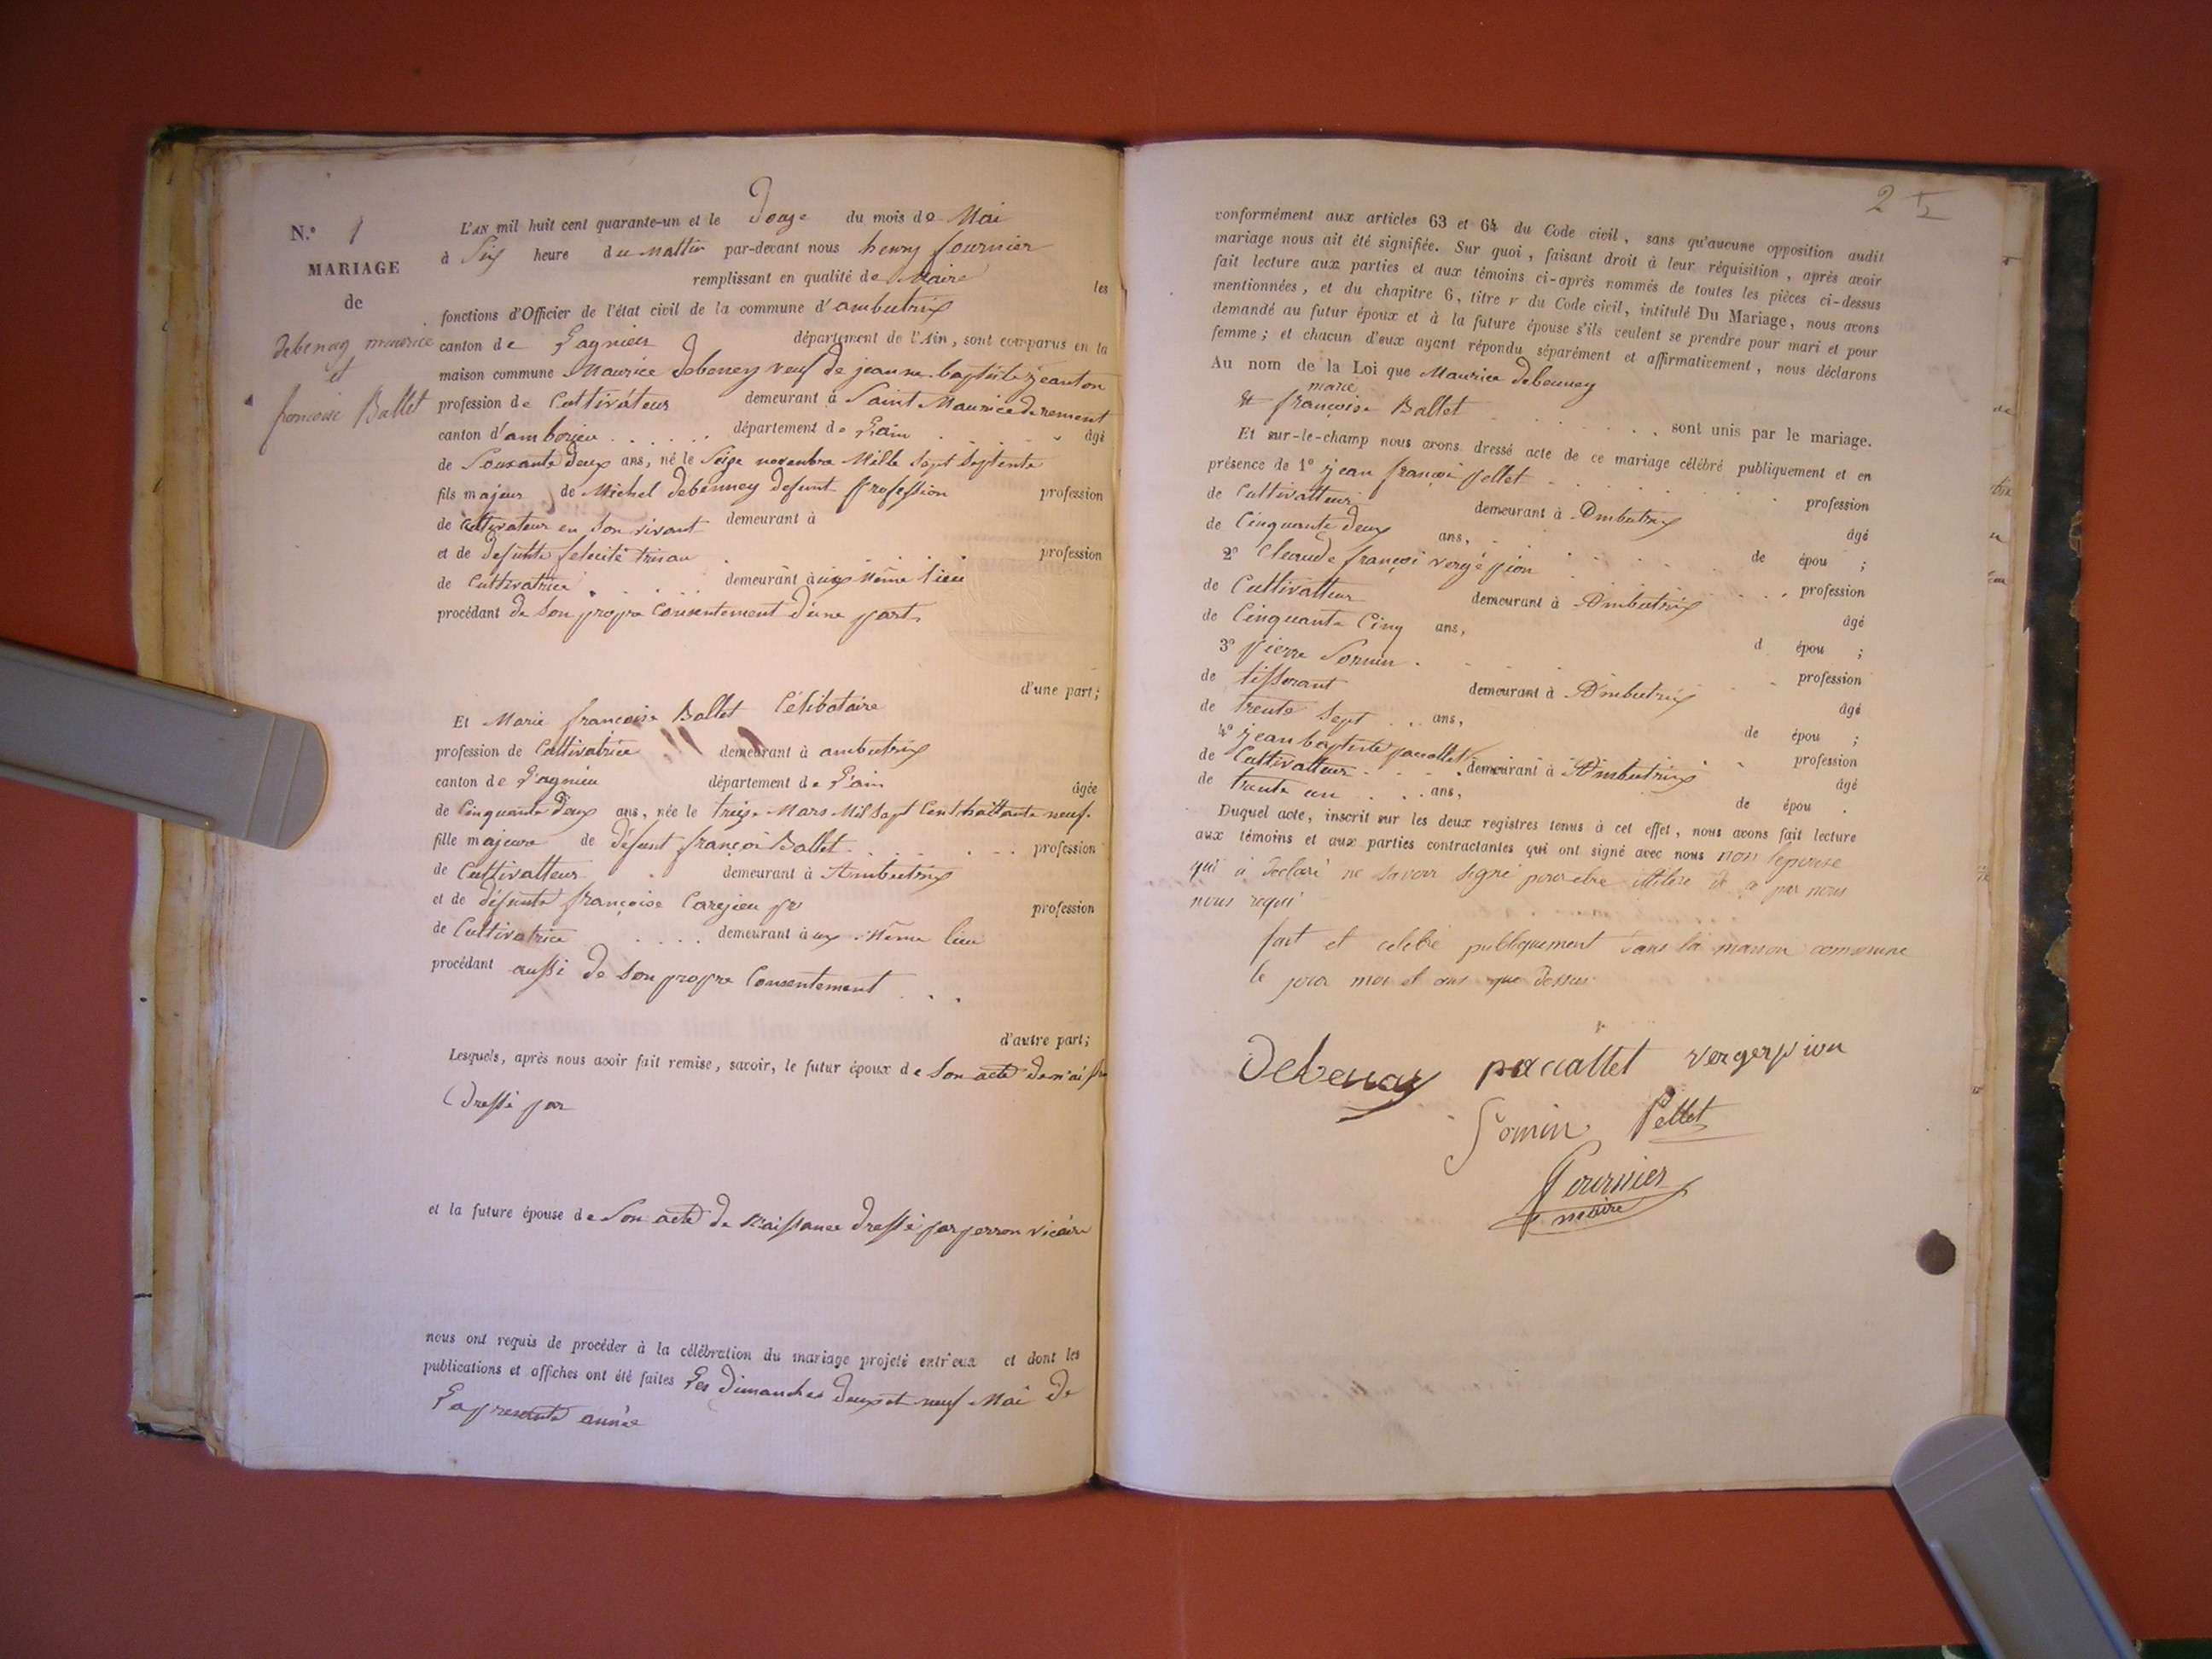 N.º 1
MARIAGE
de
debenay maurice
et
francoise Ballet
L'AN mil huit cent quarante-un et le douze du mois de Mai
à Six heure du Mattin par-devant nous henry fournier
remplissant en qualité de Maire les
fonctions d'Officier de l'état civil de la commune d'ambutrix
canton de Lagnieu département de l'Ain, sont comparus en la
maison commune Maurice debeney veuf de jeanne baptiste jeanton
profession de Cultivateur demeurant à Saint Maurice de rement
canton d'amborieu département de L'ain âgé
de Souxante deux ans, né le Seize novembre Mille Sept Septente
fils majeur de Michel debenney defunt profession profession
de Cultivateur en Son vivant demeurant à
et de defunte felicité profession
de Cultivatrice demeurant à Même lieu
procédant de Son propre Consentement d'une part
d'une part;
Et Marie francoise Ballet Célibataire
profession de Cultivatrice demeurant à ambutrix
canton de Lagnieu département de L'ain âgée
de Cinquante deux ans, née le treize Mars Mil Sept Cent huittante neuf
fille majeure de défunt françoi Ballet profession
de Cultivatteur demeurant à Ambutrix
et de défunte françoise profession
de Cultivatrice demeurant à Même lieu
procédant aussi de Son propre Consentement
d'autre part;
Lesquels, après nous avoir fait remise, savoir, le futur époux de Son acte de
Dressé par
et la future épouse de Son acte de Naissance dressé par perron vicaire
nous ont requis de procéder à la célébration du mariage projeté entr'eux et dont les
publications et affiches ont été faites Les dimanches deux et neuf Mai de
La presente année
2
conformément aux articles 63 et 64 du Code civil, sans qu'aucune opposition audit
mariage nous ait été signifiée. Sur quoi, faisant droit à leur réquisition, après avoir
fait lecture aux parties et aux témoins ci-après nommés de toutes les pièces ci-dessus
mentionnées, et du chapitre 6, titre v du Code civil, intitulé Du Mariage, nous avons
demandé au futur époux et à la future épouse s'ils veulent se prendre pour mari et pour
femme; et chacun d'eux ayant répondu séparément et affirmativement, nous déclarons
Au nom de la Loi que Maurice debenney
marie
Et françoise Ballet sont unis par le mariage.
Et sur-le-champ nous avons dressé acte de ce mariage célébré publiquement et en
présence de 1º jean françoi pellet profession
de Cultivatteur demeurant à Ambutrix âgé
de Cinquante deux ans, de épou ;
2º Cleaude françoi vergé pion profession
de Cultivatteur demeurant à Ambutrix âgé
de Cinquante Cinq ans, d épou ;
3º pierre Somin profession
de tisserant demeurant à Ambutrix âgé
de trente Sept ans, de épou ;
4º jean baptiste paccallet profession
de Cultivatteur demeurant à Ambutrix âgé
de trente un ans, de épou .
Duquel acte, inscrit sur les deux registres tenus à cet effet, nous avons fait lecture
aux témoins et aux parties contractantes qui ont signé avec nous non lepouse
qui à declaré ne Savoir Signé pour être illitere de a par nous
nous requi
fait et celebré publiquement dans la maison commune
le jour moi et ans que dessus
Debenay paccallet vergerpion
Somin Pellet
Fournier
maire